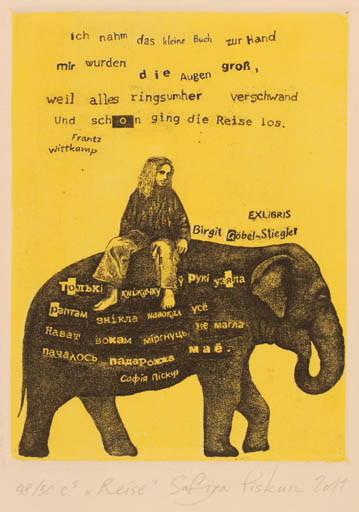 ich nahm das kleine Buch zur Hand
mir wurden die Augen groß,
weil alles ringsumher verschwand
Und schon ging die Reise los.
Frantz
Wittkamp
EXLIBRIS
Birgit Göbel-Stiegler
толькі кніжачку ў рукі узяла
раптам знікла навокал усё
Нават вокам міргнуць не магла
пачалось падарожжа маё.
Сафія Піскун
98/50 C3 „Reise" Safiya Piskun 2011